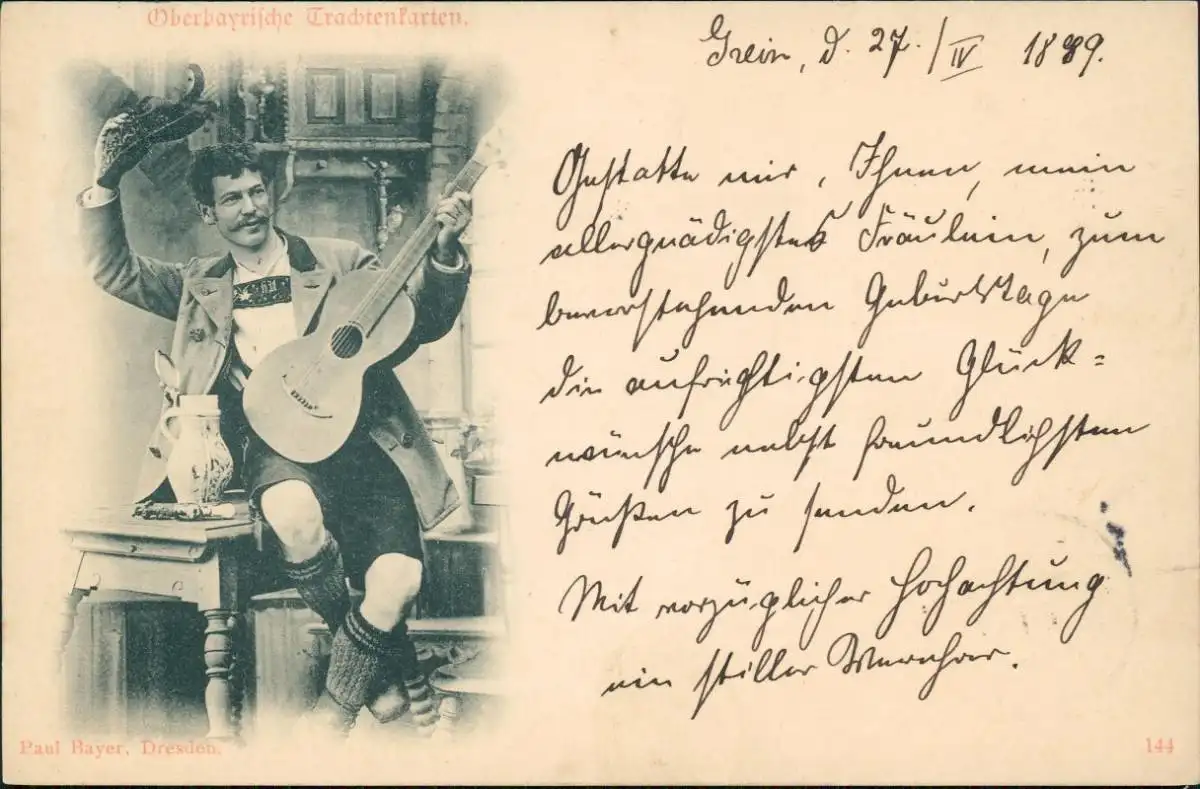 Oberbayrische Trachtenkarten.
Grein, d. 27./IV 1899.
Gestatte mir, Ihnen, mein
allergnädigstes Fräulein, zum
bevorstehenden Geburtstage
die aufrichtigsten Glück=
wünsche nebst freundlichsten
Grüßen zu senden.
Mit vorzüglicher Hochachtung
ein stiller Verehrer.
Paul Bayer, Dresden.
144